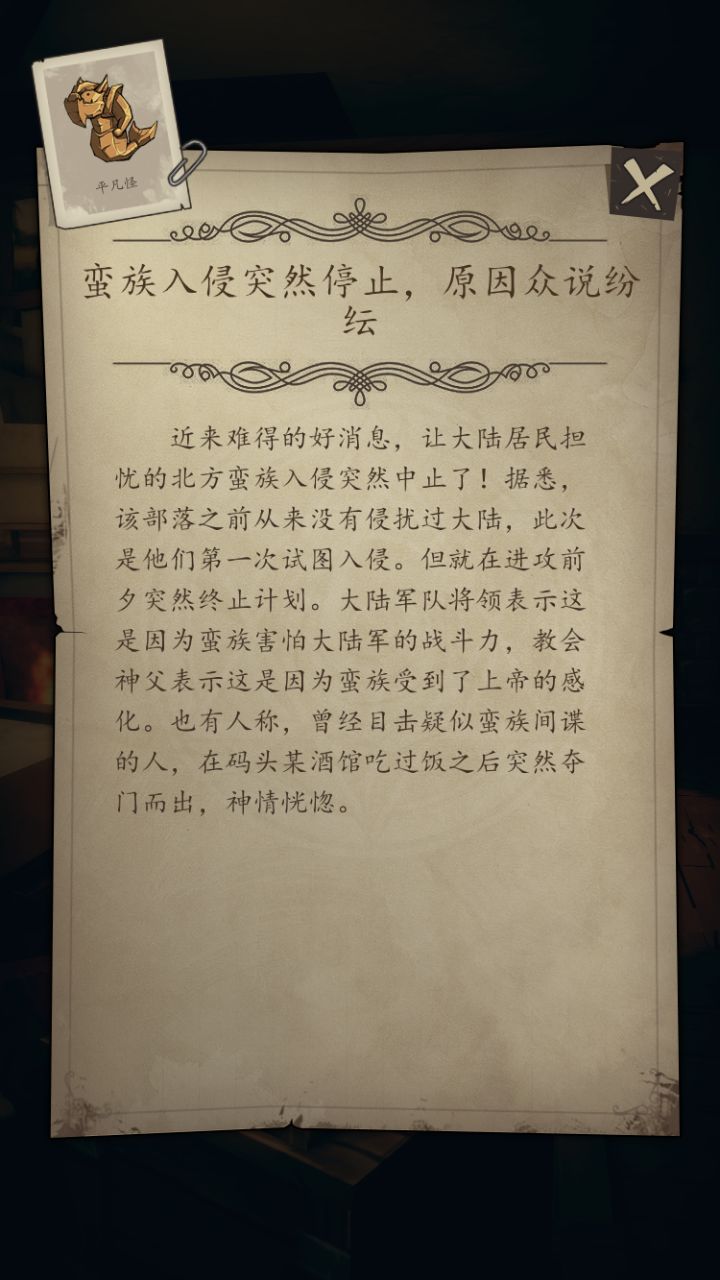 平凡怪
蛮族入侵突然停止，原因众说纷
纭
近来难得的好消息，让大陆居民担
忧的北方蛮族入侵突然中止了！据悉，
该部落之前从来没有侵扰过大陆，此次
是他们第一次试图入侵。但就在进攻前
夕突然终止计划。大陆军队将领表示这
是因为蛮族害怕大陆军的战斗力，教会
神父表示这是因为蛮族受到了上帝的感
化。也有人称，曾经目击疑似蛮族间谍
的人，在码头某酒馆吃过饭之后突然夺
门而出，神情恍惚。